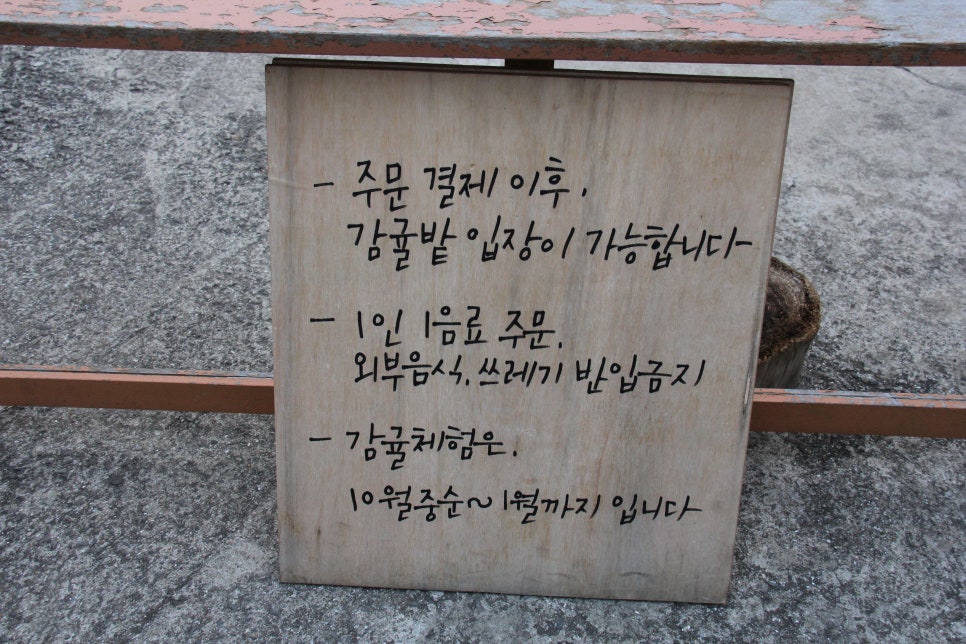 - 주문 결제 이후,
감귤밭 입장이 가능합니다
- 1인 1음료 주문,
외부음식, 쓰레기 반입금지
- 감귤체험은,
10월중순~1월까지 입니다